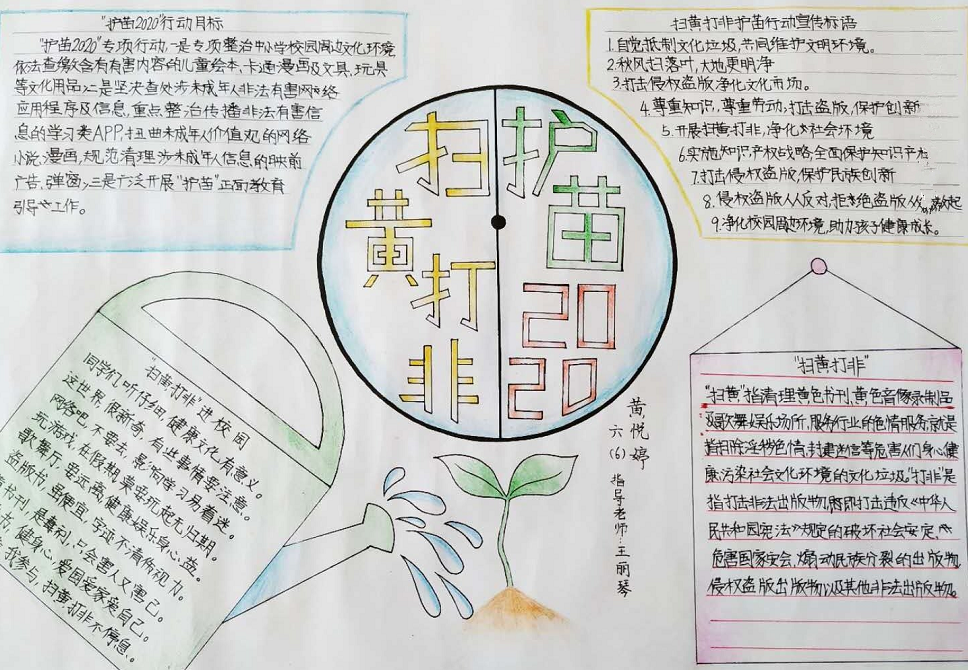 "护苗2020"行动目标
"护苗2020"专项行动,一是专项整治中小学校园周边文化环境
依法查缴含有有害内容的儿童绘本、卡通漫画及文具,玩具
等文化用品;二是坚决查处涉未成年人非法有害网络
应用程序及信息,重点整治传播非法有害信
息的学习类APP,扭曲未成年人价值观的网络
小说,漫画,规范清理涉未成年人信息的映前
广告,弹窗,三是广泛开展"护苗"正面教育
引导工作。
扫黄打非护苗行动宣传标语
1.自觉抵制文化垃圾,共同维护文明环境。
2.秋风扫落叶,大地更明净
3.打击侵权盗版净化文化市场。
4.尊重知识,尊重劳动,打击盗版,保护创新
5.开展扫黄打非,净化社会环境
6.实施知识产权战略,全面保护知识产
7.打击侵权盗版,保护民族创新
8.侵权盗版人人反对,拒绝盗版从 做起
9.净化校园周边环境,助力孩子健康成长。
扫黄打非
护苗2020
黄悦婷
六(6)
指导老师:王丽琴
"扫黄打非"进校园
同学们,听仔细,健康文化,有意义。
这世界,很新奇,有些事情要注意。
网络吧,不要去,影响学习易着迷。
玩游戏,在假期,常常玩起无归期。
歌舞厅,要远离,健康娱乐身心益。
盗版书,虽便宜,字迹不清伤视力。
书刊,是暴利,只会害人又害己。
健身心,爱国爱家爱自己。
我参与,扫黄打非不停息。
"扫黄打非"
"扫黄"指清理黄色书刊,黄色音像录制品
及歌舞娱乐场所,服务行业的色情服务,就是
指扫除淫秽色情,封建迷信等危害人们身心健
康,污染社会文化环境的文化垃圾。"打非"是
指打击非法出版物,即打击违反《中华人
民共和国宪法》规定的破坏社会安定,
危害国家安全,煽动民族分裂的出版物,
侵权盗版出版物以及其他非法出版物。